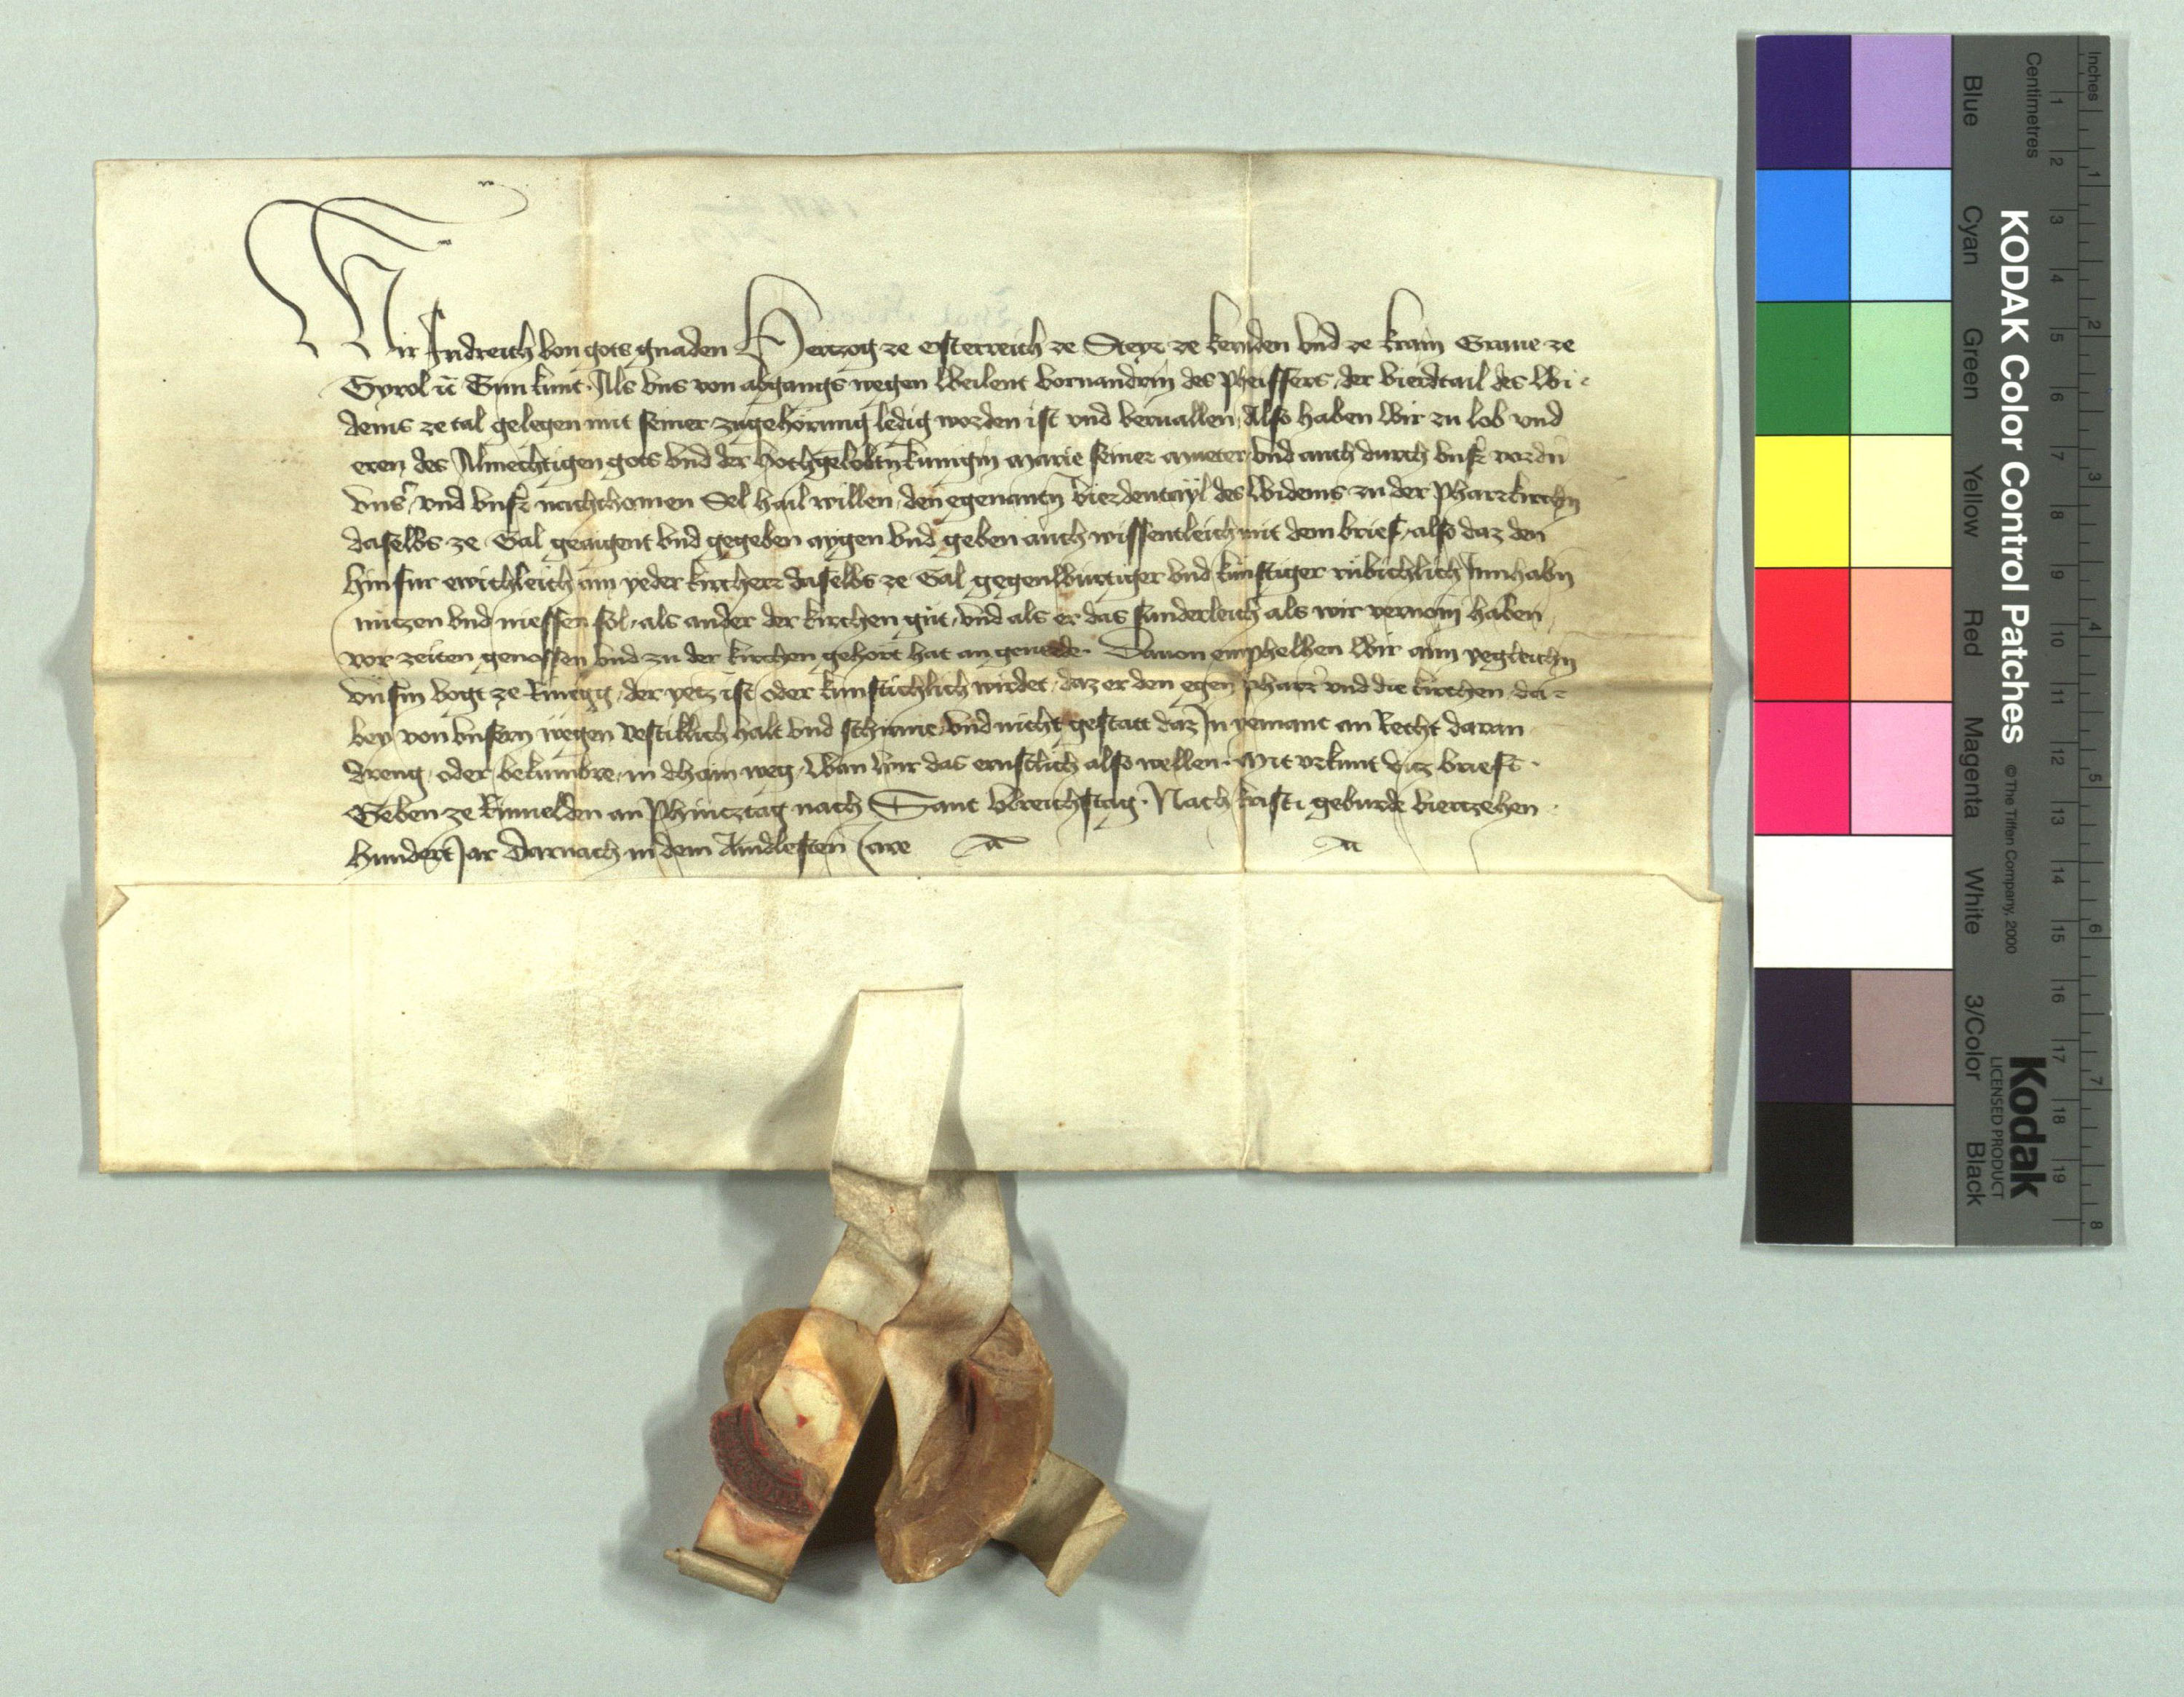 Wir Fridreich von gots gnaden Hertzog ze Österreich ze Steyr ze kernden vnd ze krain Graue ze
Tyrol ꝛc Tun kunt. Als vns von abgangs wegen Weilent des Pheiffers, der vierdtail des Wi-
dems ze tal gelegen mit seiner zugehörung ledig worden ist vnd veruallen, Also haben wir zu lob vnd
eren des Almechtigen gots vnd der hochgelobtn kunigin Marie seiner mueter vnd auch durch vnsr vordn
vnsr, vnd vnsr nachkomen Sel hail willen, den egenantn vierdentayl des Widems zu der Pharrkirchn
daselbs ze Tal geaigent vnd gegeben aygen vnd geben auch wissentleich mit dem brief, also daz den
hinfur ewichleich ain yeder kircherr daselbs ze Tal gegenwürtiger vnd künftiger rübichlich Innhabn
nützen vnd niessen sol, als ander der kirchen güt, vnd als er das sunderleich als wir vernom haben
vor zeiten genossen vnd zu der kirchen gehört hat an geuerde. Dauon emphelhen wir aim yegleichn
vnsm vogt ze der yetz ist oder kunftichlich wirdet, daz er den egen pharr vnd die kirchen da-
bey von vnsern wegen vestiklich halt vnd schirme, vnd nicht gestatt daz In yemant an Recht daran
dreng, oder bekümbre, in dhain weg, Wan wir das ernstlich also wellen. Mit vrkunt ditz briefs.
Geben ze an Phintztag nach Sant Vlreichstag. Nach kristi geburde viertzehen
hundert Jar Darnach in dem Aindlesten Jare
Inches
Centimetres
1 2 3 4 5 6 7 8
1 2 3 4 5 6 7 8 9 10 11 12 13 14 15 16 17 18 19
KODAK Color Control Patches
© The Tiffen Company, 2000
Kodak
LICENSED PRODUCT
Blue Cyan Green Yellow Red Magenta White 3/Color Black